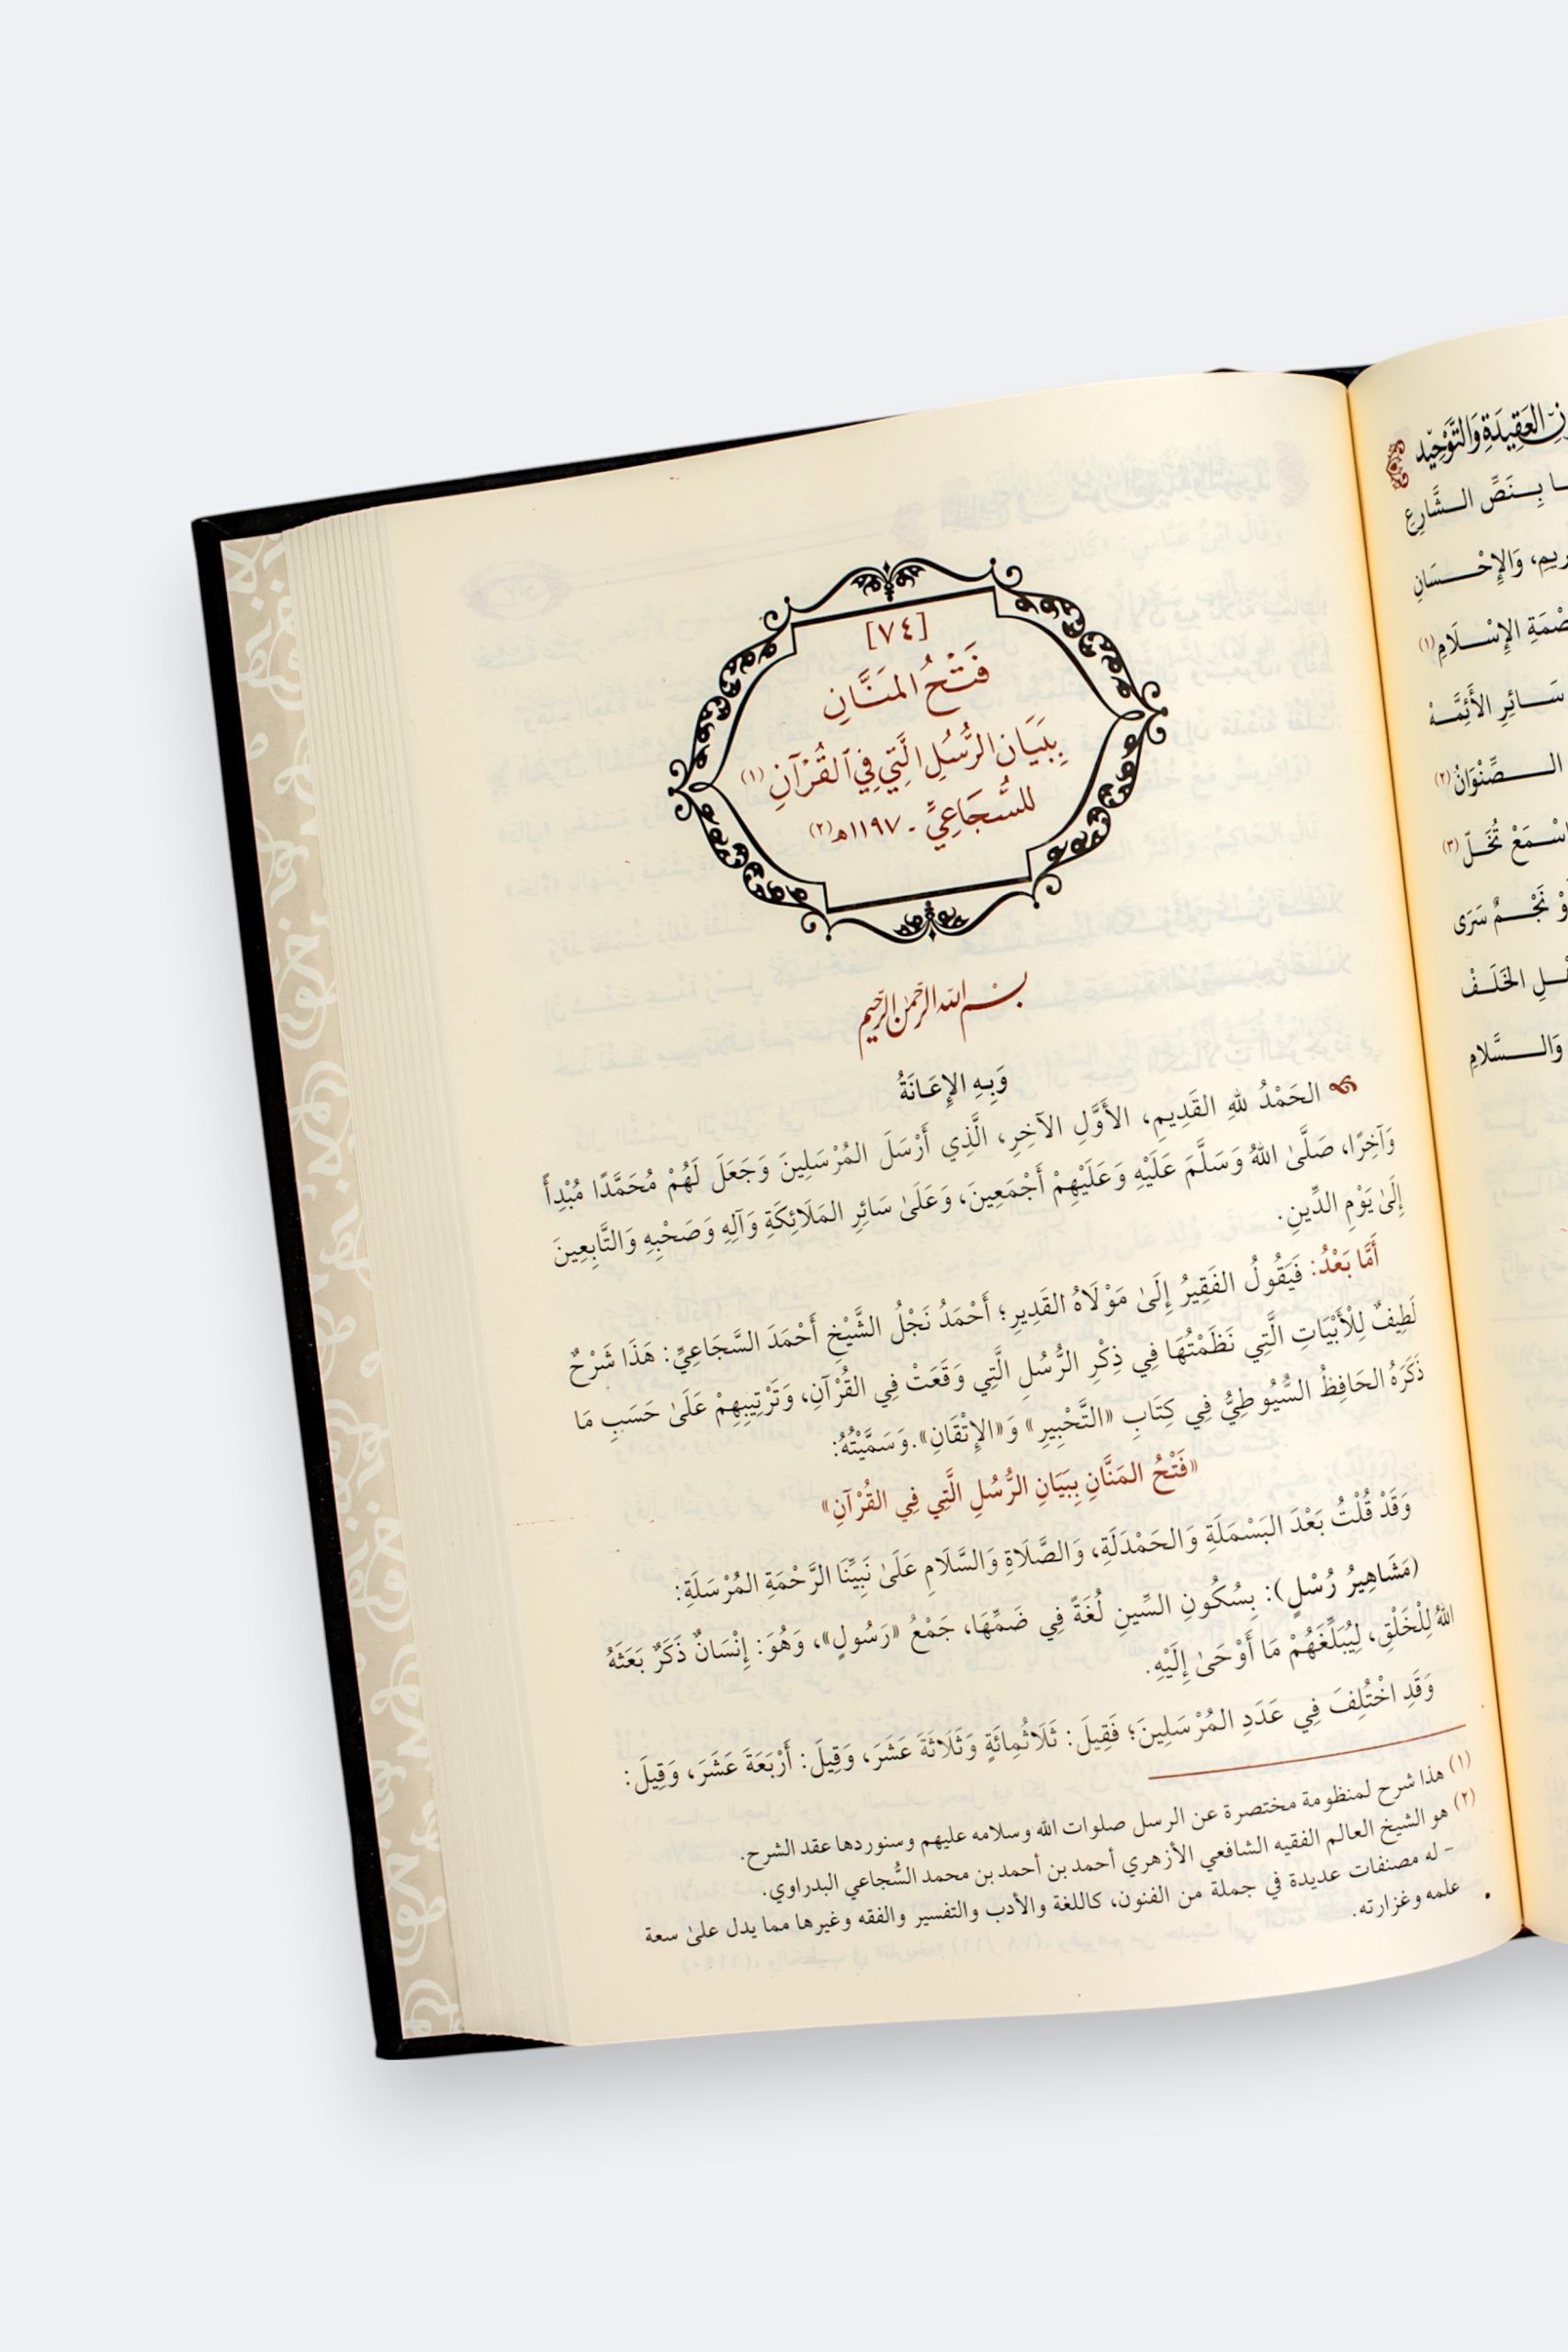 نِ العَقِيدَةِ وَالتَّوْحِيد
ـا بِـنَصِّ الـشَّارِعِ
وَالإِحْـسَانِ
الإِسْـلَامِ(١)
سَـائِرِ الأَئِمَّـهْ
الـصِّنْوَانُ(٢)
تُخَـلّ(٣)
نَجْـمٌ سَرَى
الخَلَـفْ
وَالـسَّلامِ
[٧٤]
فَتْحُ المَنَّانِ
بِبَيَانِ الرُّسُلِ الَّتِي فِي القُرْآنِ(١)
للسُّجَاعِيِّ - ١١٩٧هـ(٢)
بسم الله الرحمن الرحيم
وَبِهِ الإِعَانَةُ
الحَمْدُ للهِ القَدِيمِ، الأَوَّلِ الآخِرِ، الَّذِي أَرْسَلَ المُرْسَلِينَ وَجَعَلَ لَهُمْ مُحَمَّدًا مُبْدِأً
وَآخِرًا، صَلَّىٰ اللهُ وَسَلَّمَ عَلَيْهِ وَعَلَيْهِمْ أَجْمَعِينَ، وَعَلَىٰ سَائِرِ المَلَائِكَةِ وَآلِهِ وَصَحْبِهِ وَالتَّابِعِينَ
إِلَىٰ يَوْمِ الدِّينِ.
أَمَّا بَعْدُ: فَيَقُولُ الفَقِيرُ إِلَىٰ مَوْلَاهُ القَدِيرِ؛ أَحْمَدُ نَجْلُ الشَّيْخِ أَحْمَدَ السَّجَاعِيِّ: هَذَا شَرْحٌ
لَطِيفٌ لِلْأَبْيَاتِ الَّتِي نَظَمْتُهَا فِي ذِكْرِ الرُّسُلِ الَّتِي وَقَعَتْ فِي القُرْآنِ، وَتَرْتِيبِهِمْ عَلَىٰ حَسَبِ مَا
ذَكَرَهُ الحَافِظُ السُّيُوطِيُّ فِي كِتَابِ «التَّحْبِيرِ» وَ«الإِتْقَانِ».وَسَمَّيْتُهُ:
«فَتْحُ المَنَّانِ بِبَيَانِ الرُّسُلِ الَّتِي فِي القُرْآنِ»
وَقَدْ قُلْتُ بَعْدَ البَسْمَلَةِ وَالحَمْدَلَةِ، وَالصَّلَاةِ وَالسَّلَامِ عَلَىٰ نَبِيِّنَا الرَّحْمَةِ المُرْسَلَةِ:
(مَشَاهِيرُ رُسْلٍ): بِسُكُونِ السِّينِ لُغَةً فِي ضَمِّهَا، جَمْعُ «رَسُولٍ»، وَهُوَ: إِنْسَانٌ ذَكَرٌ بَعَثَهُ
اللهُ لِلْخَلْقِ، لِيُبَلِّغَهُمْ مَا أَوْحَىٰ إِلَيْهِ.
وَقَدِ اخْتُلِفَ فِي عَدَدِ المُرْسَلِينَ؛ فَقِيلَ: ثَلَاثُمِائَةٍ وَثَلَاثَةَ عَشَرَ، وَقِيلَ: أَرْبَعَةَ عَشَرَ، وَقِيلَ:
(١) هذا شرح لمنظومة مختصرة عن الرسل صلوات الله وسلامه عليهم وسنوردها عقد الشرح.
(٢) هو الشيخ العالم الفقيه الشافعي الأزهري أحمد بن أحمد بن محمد السُّجاعي البدراوي.
- له مصنفات عديدة في جملة من الفنون، كاللغة والأدب والتفسير والفقه وغيرها مما يدل علىٰ سعة
علمه وغزارته.